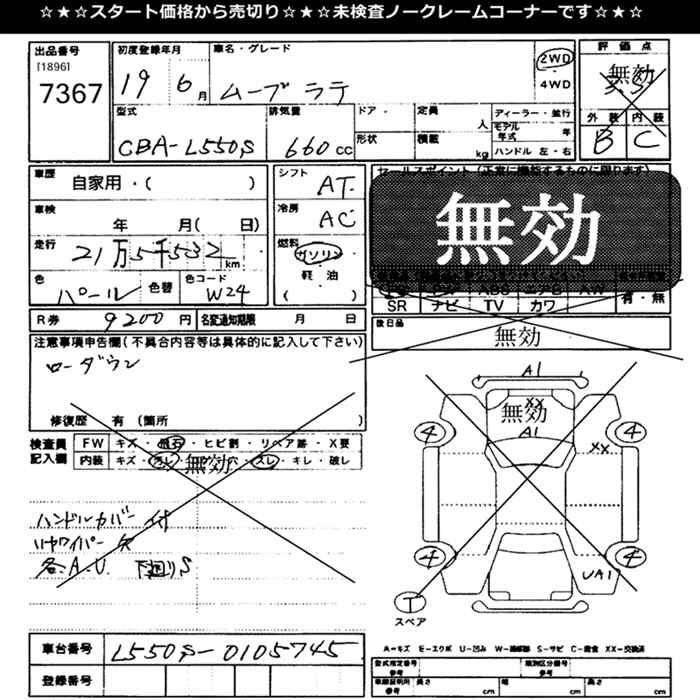 ☆★☆★スタート価格から売切り☆★☆★未検査ノークレームコーナーです☆★☆
出品番号
[1896]
7367
初度登録年月
19 6月
車名・グレード
ムーブ ラテ
2WD
・
4WD
評価点
無効
3.5
外装 内装
B C
型式
CBA-L550S
排気量
660cc
ドア・形状
定員
人
積載
kg
ディーラー・並行
モデル年式 年
ハンドル 左・右
車歴
自家用・( )
車検
年 月( 日)
走行
21万5千532km
色
パール
色替
色コード
W24
シフト
AT
冷房
AC
燃料
ガソリン
軽・油
( )
セールスポイント(正常に機能するものに限ります)
無効
SR ナビ TV カワ
有・無
R券 9200円
名変通知期限 月 日
後日品
無効
注意事項申告欄(不具合内容等は具体的に記入して下さい)
ローダウン
修復歴 有(箇所 )
検査員記入欄
FW キズ・飛石・ヒビ割・リペア跡・X要
内装 キズ・穴・スレ・キレ・破し
無効
ハンドルカバー付
リヤワイパー欠
各A.U. 下廻りS
A1
XX
無効
A1
4 4
XX
4 4
UA1
T
スペア
A-キズ E-エクボ U-凹み W-補修跡 S-サビ C-腐食 XX-交換済
車台番号
L550S-0105745
登録番号
型式指定番号 参考
類別区分番号 参考
車検証明所 参考
長さ cm
幅 cm
高さ cm